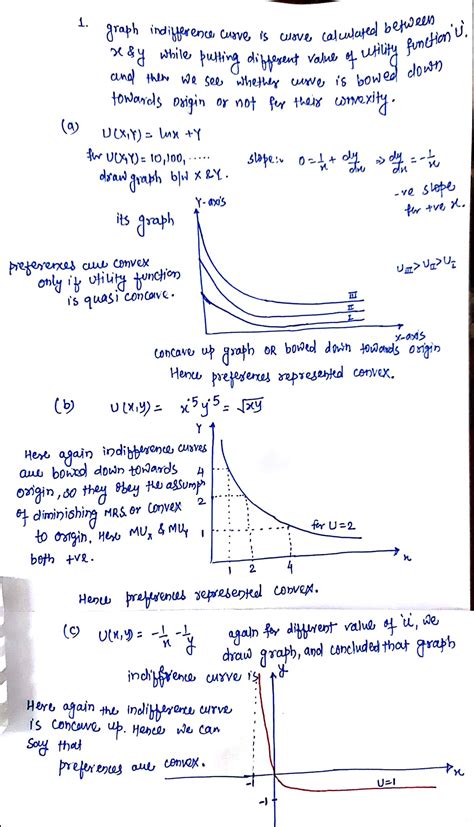 1. graph indifference curve is curve calculated between
x & y while putting different value of utility function 'U'.
and then we see whether curve is bowed down
towards origin or not for their convexity.
(a) U(X,Y) = lnx + Y
for U(X,Y) = 10, 100, ......
draw graph b/w X & Y.
slope:- 0 = 1/x + dy/dx ⇒ dy/dx = -1/x
-ve slope
for +ve x.
its graph
Y-axis
preferences are convex
only if utility function
is quasi concave.
UIII > UII > UI
III
II
I
X-axis
concave up graph OR bowed down towards origin
Hence preferences represented convex.
(b) U(x,y) = x^.5 y^.5 = √xy
Here again indifference curves
are bowed down towards
origin, so they obey the assump
of diminishing MRS. or convex
to origin. Here MUx & MUy
both +ve.
Y
4
2
1
for U=2
1 2 4
x
Hence preferences represented convex.
(c) U(x,y) = -1/x - 1/y
again for different value of 'U', we
draw graph, and concluded that graph
indiffrence curve is
y
Here again the indifference curve
is concave up. Hence we can
say that
preferences are convex.
-1
-1
U=1
x